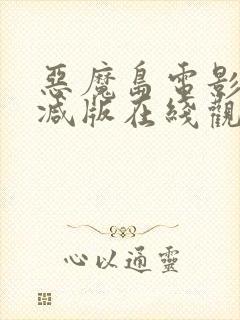 惡魔島電影
減版在綫觀
心以通靈